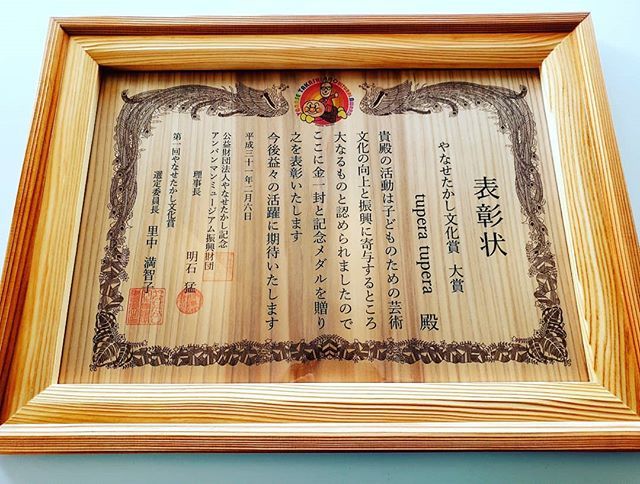 表彰状
やなせたかし文化賞 大賞
tupera tupera 殿
貴殿の活動は子どものための芸術
文化の向上と振興に寄与するところ
大なるものと認められましたので
ここに金一封と記念メダルを贈り
之を表彰いたします
今後益々の活躍に期待いたします
平成三十一年二月六日
公益財団法人やなせたかし記念
アンパンマンミュージアム振興財団
理事長 明石 猛
第一回やなせたかし文化賞
選定委員長 里中 満智子